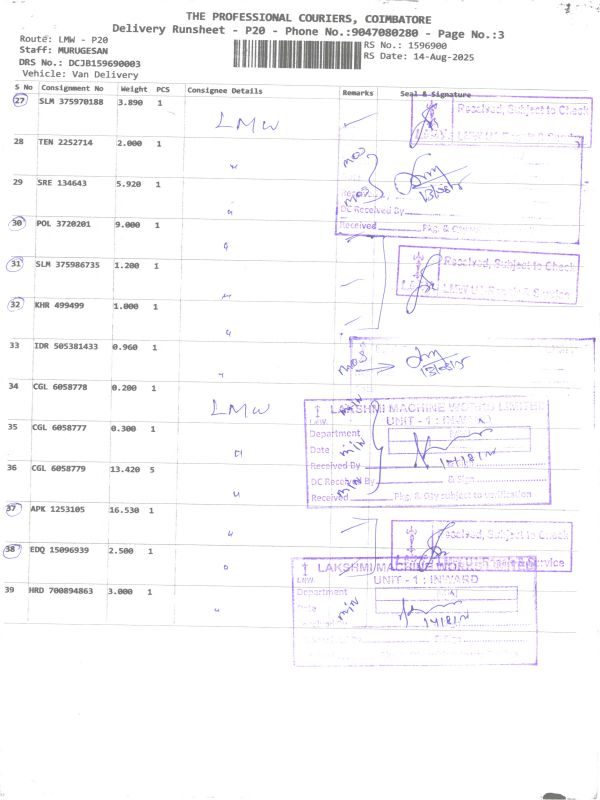 THE PROFESSIONAL COURIERS, COIMBATORE
Delivery Runsheet - P20 - Phone No.:9047080280 - Page No.:3
Route: LMW - P20
RS No.: 1596900
Staff: MURUGESAN
RS Date: 14-Aug-2025
DRS No.: DCJB159690003
Vehicle: Van Delivery
S No Consignment No Weight PCS Consignee Details Remarks Seal & Signature
27 SLM 375970188 3.890 1 LMW
Received, Subject to Check
28 TEN 2252714 2.000 1 "
29 SRE 134643 5.920 1 "
DC Received By
Received Pkg. &
30 POL 3720201 9.000 1 "
31 SLM 375986735 1.200 1 "
Received, Subject to Check
32 KHR 499499 1.000 1 "
33 IDR 505381433 0.960 1 "
34 CGL 6058778 0.200 1 LMW
LAKSHMI MACHINE WORKS LIMITED
UNIT - 1 : INWARD
35 CGL 6058777 0.300 1 "
Department
Date
Received By
36 CGL 6058779 13.420 5 "
DC Received By & Sign
Received Pkg. & Qty subject to verification
37 APK 1253105 16.530 1 "
Received, Subject to Check
38 EDQ 15096939 2.500 1 "
LAKSHMI MACHINE
LMW
UNIT - 1 : INWARD
39 HRD 700894863 3.000 1 "
Department
Date